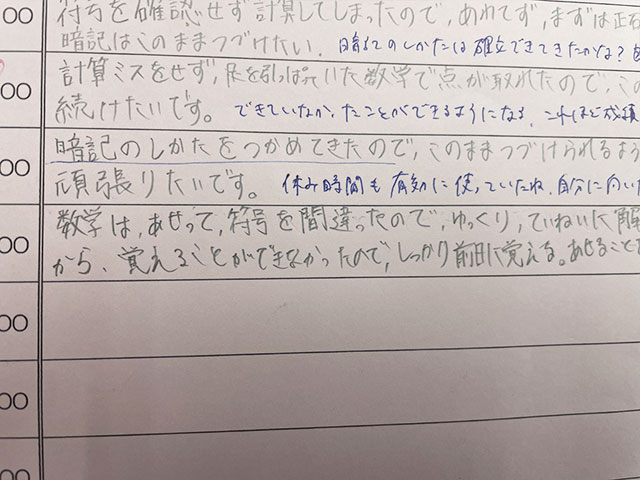 符号を確認せず計算してしまったので,あわてず,まずは正
00 暗記はこのままつづけたい. 暗記のしかたは確立できてきたかな?
計算ミスをせず,足を引っぱっていた数学で点が取れたので,この
00 続けたいです。 できていなかったことができるようになる. これほど成績
暗記のしかたをつかめてきたので,このままつづけられるよう
00 頑張りたいです。 休み時間も有効に使っていたね.自分に向いた
数学は,あせって,符号を間違ったので,ゆっくり,ていねいに解
00 から、覚えることができなかったので,しっかり前日に覚える。あせること
00
00
00